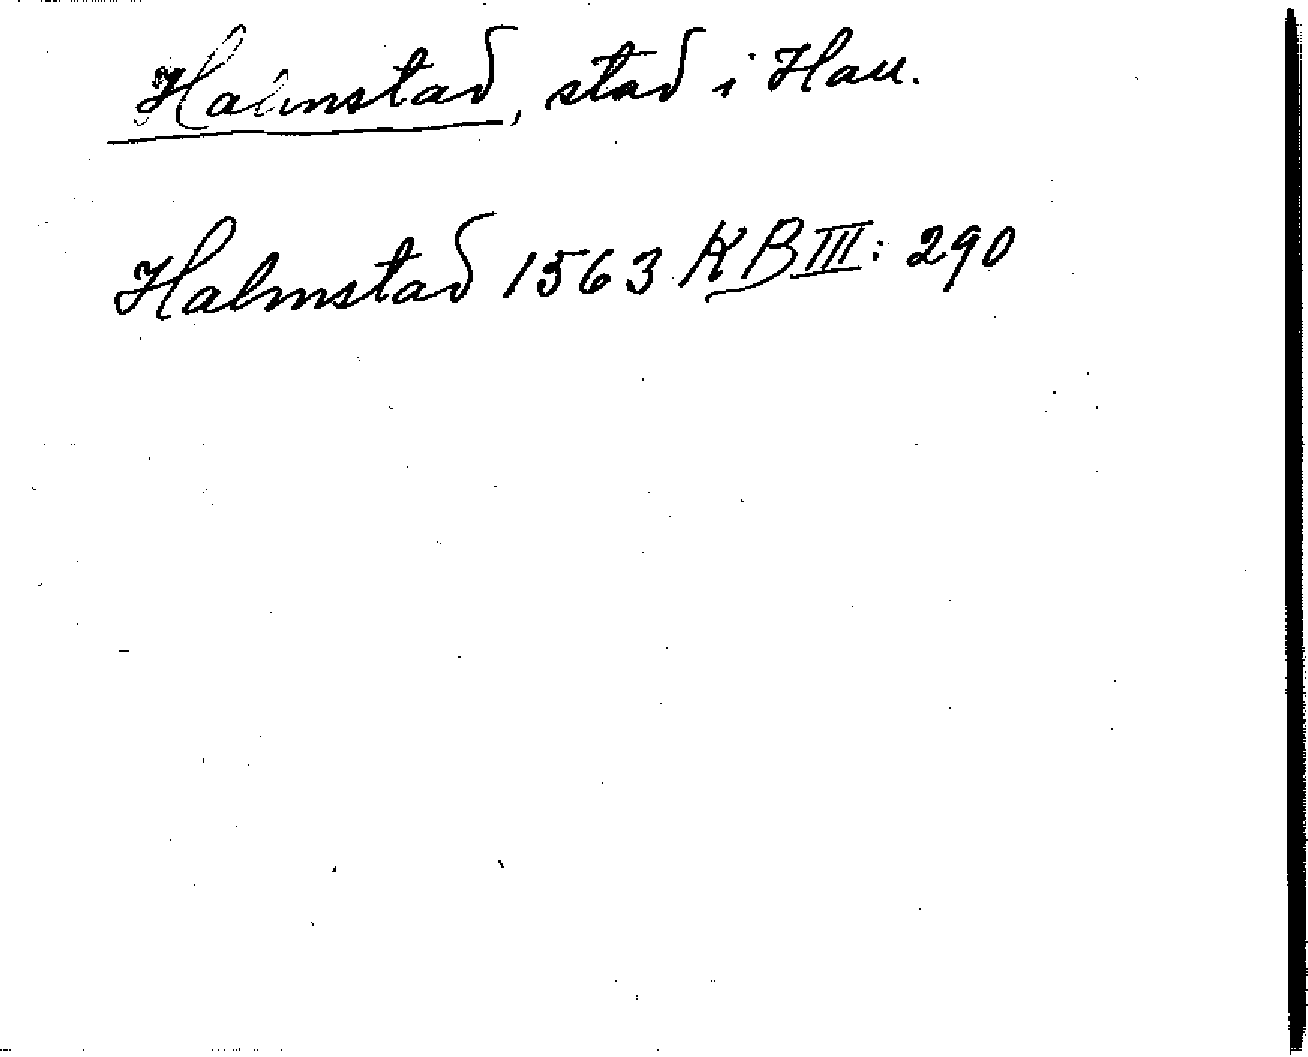 Halmstad, stad i Hall.
Halmstad 1563 KB III: 290